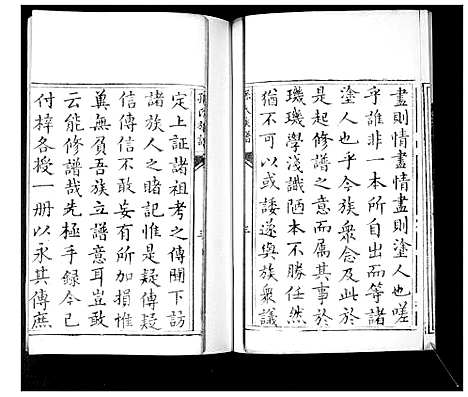 盡則情盡情盡則塗人也嗟
乎誰非一本所自出而等諸
塗人也乎今族衆念及此於
是起修譜之意而属其事於
璣璣學淺識陋本不勝任然
猶不可以或諉遂與族衆議
族譜
三
定上証諸祖考之傳聞下訪
諸族人之賭記惟是疑傳疑
信傳信不敢妄有所加損惟
冀無負吾族立譜意耳豈敢
云能修譜哉先極手録今已
付梓各授一冊以永其傳庶